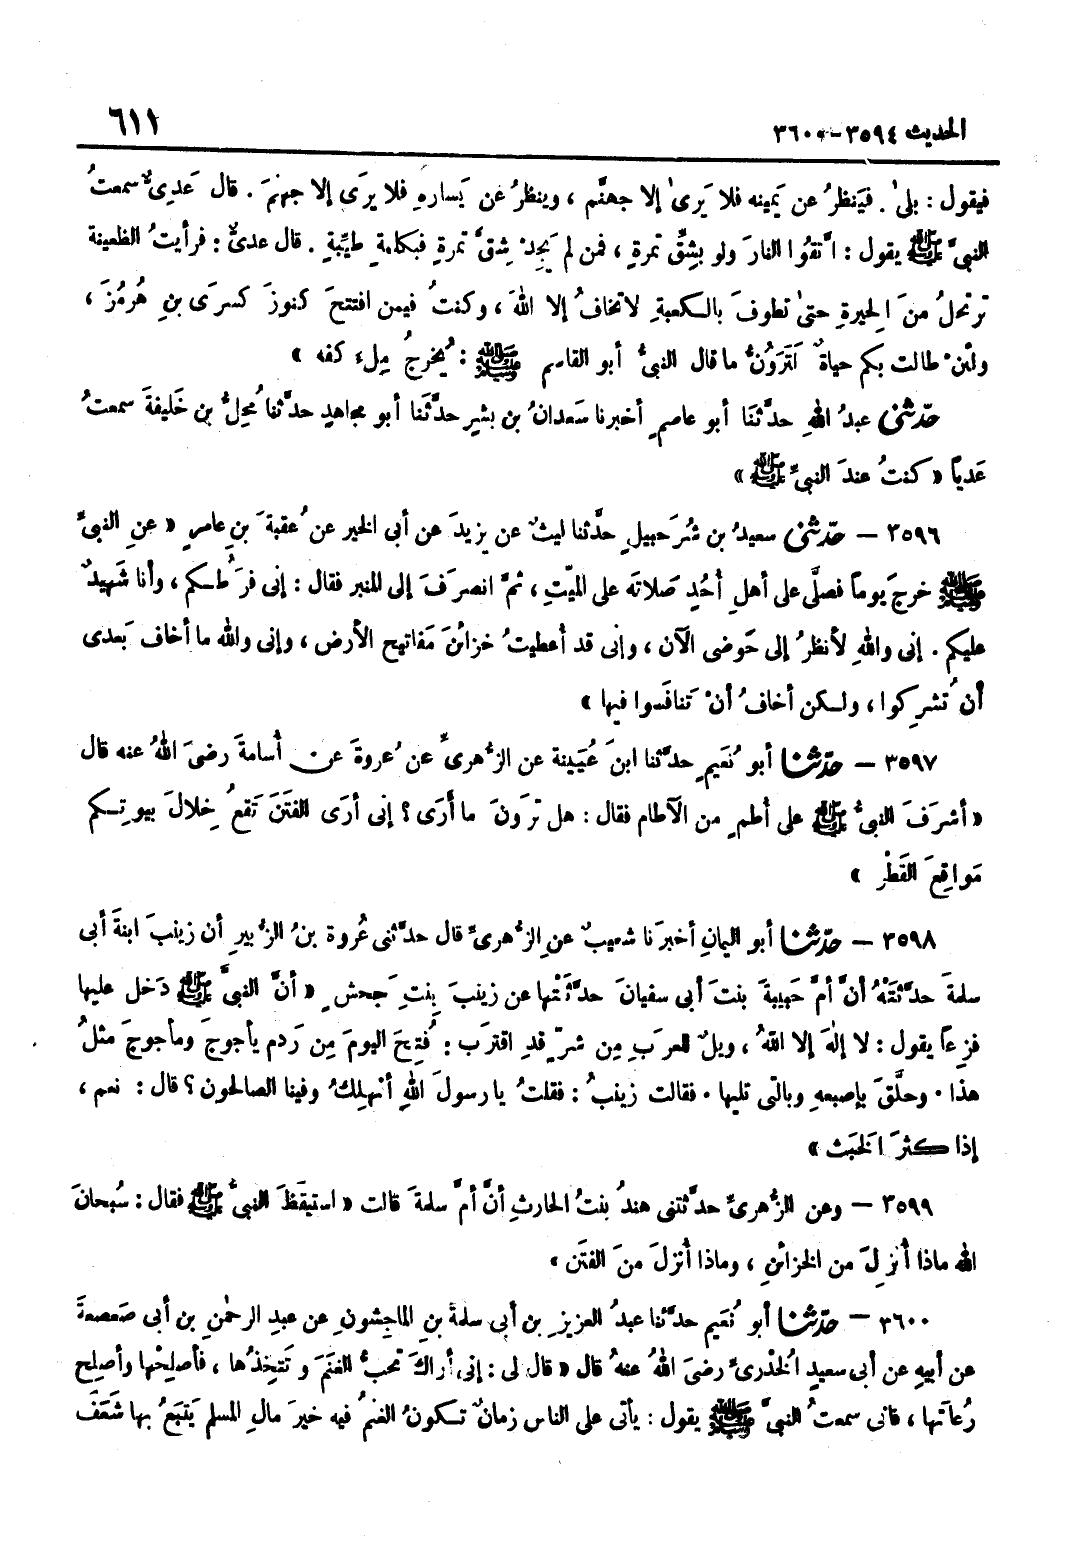 الحديث ٣٥٩٤-٣٦٠٠ ٦١١
فيقول : بلىٰ . فيَنظرُ عن يَمينه فلا يَرىٰ إلا جهنَّم ، وينظرُ عن يَسارهِ فلا يرَى إلا جهنمَ . قال عَدىٌّ سمعتُ
النبىَّ ﷺ يقول : اتَّقُوا النارَ ولو بشِقِّ تمرةٍ ، فمن لم يَجِدْ شِقَّ تمرةٍ فبكلمةٍ طيِّبةٍ . قال عدىٌّ : فرأيتُ الظعينة
ترتحلُ منَ الحِيرةِ حتىٰ تطوفَ بالكعبةِ لا تخافُ إلا اللهَ ، وكنتُ فيمن افتتحَ كنوزَ كسرَى بنِ هُرمُزَ ،
ولئنْ طالت بكم حياةٌ لَتَرَوُنَّ ما قال النبىُّ أبو القاسم ﷺ : يُخرجُ مِلءَ كفه »
حدّثنى عبدُ اللهِ حدَّثنَا أبو عاصمٍ أخبرنا سَعدانُ بن بشيرٍ حدَّثَنا أبو مجاهدٍ حدَّثنا مُحِلُّ بن خَليفةَ سمعتُ
عَدياً « كنتُ عندَ النبىِّ ﷺ »
٣٥٩٦ – حدّثنى سعيدُ بن شُرَحبيلٍ حدَّثنا ليثٌ عن يزيدَ عن أبى الخير عن عُقبةَ بنِ عامرٍ « عنِ النبىِّ
ﷺ خرجَ يوماً فصلَّى على أهلِ أُحُدٍ صَلاتَه على الميّتِ ، ثمَّ انصرَفَ إلى المنبر فقال : إنى فرَطُكم ، وأنا شَهيدٌ
عليكم . إنى واللهِ لأنظرُ إلى حَوضى الآن ، وإنى قد أعطيتُ خزائنَ مَفاتيح الأرض ، وإنى والله ما أخاف بَعدى
أن تُشرِكوا ، ولكن أخافُ أنْ تَنافَسوا فيها »
٣٥٩٧ – حدّثنا أبو نُعَيمٍ حدَّثنا ابنُ عُيَينة عن الزُّهرىِّ عن عُروةَ عن أسامةَ رضىَ اللهُ عنه قال
« أشرَفَ النبىُّ ﷺ على أُطمٍ من الآطام فقال : هل ترَونَ ما أرَى ؟ إنى أرَى الفتَنَ تَقعُ خِلالَ بيوتِكم
مَواقِعَ القَطْر »
٣٥٩٨ – حدّثنا أبو اليمانِ أخبرَنا شعيبٌ عنِ الزُّهرىِّ قال حدَّثنى عُروة بنُ الزُّبيرِ أن زينبَ ابنةَ أبى
سلمةَ حدَّثَتْهُ أنَّ أمَّ حَبيبةَ بنتَ أبى سفيانَ حدَّثَتْها عن زينبَ بِنتِ جَحشٍ « أنَّ النبىَّ ﷺ دَخل عليها
فزِعاً يقول : لا إلٰهَ إلا اللهُ ، ويلٌ للعرَبِ مِن شرٍّ قدِ اقترَب : فُتِحَ اليومَ مِن رَدمِ يأجوجَ ومأجوجَ مثلُ
هذا . وحلَّقَ بإصبعهِ وبالتى تليها . فقالت زينبُ : فقلتُ يا رسولَ اللهِ أنَهلِكُ وفينا الصالحون ؟ قال : نعم ،
إذا كثرَ الخبَثُ »
٣٥٩٩ – وعن الزُّهرىِّ حدَّثتنى هندُ بنتُ الحارثِ أنَّ أمَّ سلمةَ قالت « استيقَظَ النبىُّ ﷺ فقال : سُبحانَ
الله ماذا أُنزِلَ من الخزائنِ ، وماذا أُنزلَ منَ الفتَن »
٣٦٠٠ – حدّثنا أبو نُعَيمٍ حدَّثنا عبدُ العزيزِ بن أبى سلمةَ بنِ الماجِشونِ عن عبدِ الرحمٰنِ بن أبى صَعصعةَ
عن أبيهِ عن أبى سعيدٍ الخُدْرىِّ رضىَ اللهُ عنهُ قال « قال لى : إنى أراكَ تحبُّ الغنَمَ وتَتخِذُها ، فأصلِحْها وأصلِح
رُعاتَها ، فانى سمعتُ النبىَّ ﷺ يقول : يأتى على الناس زمانٌ تكونُ الغنمُ فيه خيرَ مالِ المسلم يَتبَعُ بها شَعَفَ